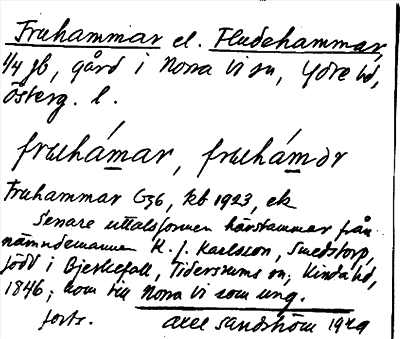 Fruhammar el. Fludehammar,
1/4 jb, gård i Norra Vi sn, Ydre hd,
Österg. l.
fruhámar, fruhámər
Fruhammar G36, kb 1923, ek
Senare uttalsformen härstammar från
nämndemannen K. J. Karlsson, Smedstorp,
född i Bjerkefall, Tidersrums sn, Kinda hd,
1846; kom till Norra Vi som ung.
forts. Axel Sandström 1929